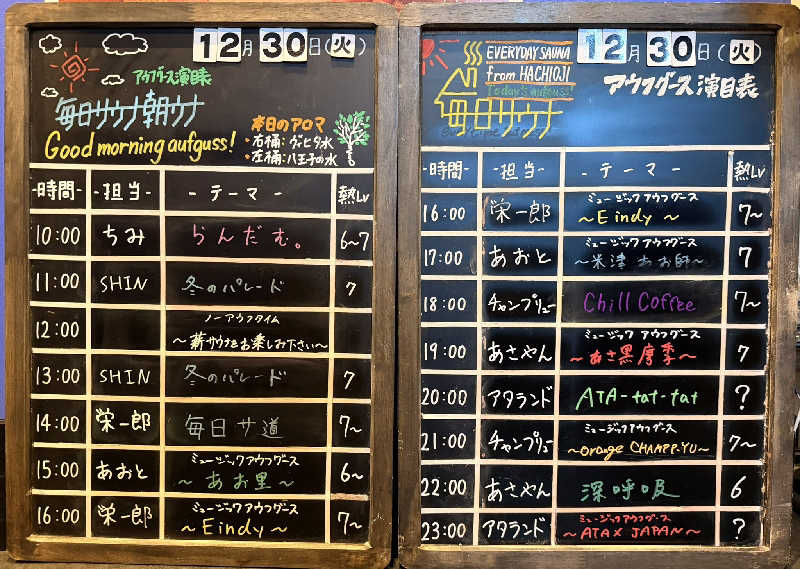 12月30日(火)
アウフグース演目表
毎日サウナ朝ウナ
Good morning aufguss!
本日のアロマ
・右桶:ヴィヒタ水
・左桶:八王子の水
-時間- -担当- -テーマ- 熱Lv
10:00 ちみ らんだむ。 6~7
11:00 SHIN 冬のパレード 7
12:00 ノーアウフタイム
~薪サウナをお楽しみ下さい~
13:00 SHIN 冬のパレード 7
14:00 栄一郎 毎日サ道 7~
15:00 あおと ミュージックアウフグース 6~
~あお里~
16:00 栄一郎 ミュージックアウフグース 7~
~Eindy~
EVERYDAY SAUNA
from HACHIOJI
Today's aufguss!
毎日サウナ
12月30日(火)
アウフグース演目表
-時間- -担当- -テーマ- 熱Lv
16:00 栄一郎 ミュージックアウフグース 7~
~Eindy~
17:00 あおと ミュージックアウフグース 7
~米津あお師~
18:00 チャンプリュー Chill Coffee 7~
19:00 あさやん ミュージックアウフグース 7
~あさ黒摩季~
20:00 アタランド ATA-tat-tat ?
21:00 チャンプリュー ミュージックアウフグース 7~
~orange CHAMPP-YU~
22:00 あさやん 深呼吸 6
23:00 アタランド ミュージックアウフグース ?
~ATAX JAPAN~